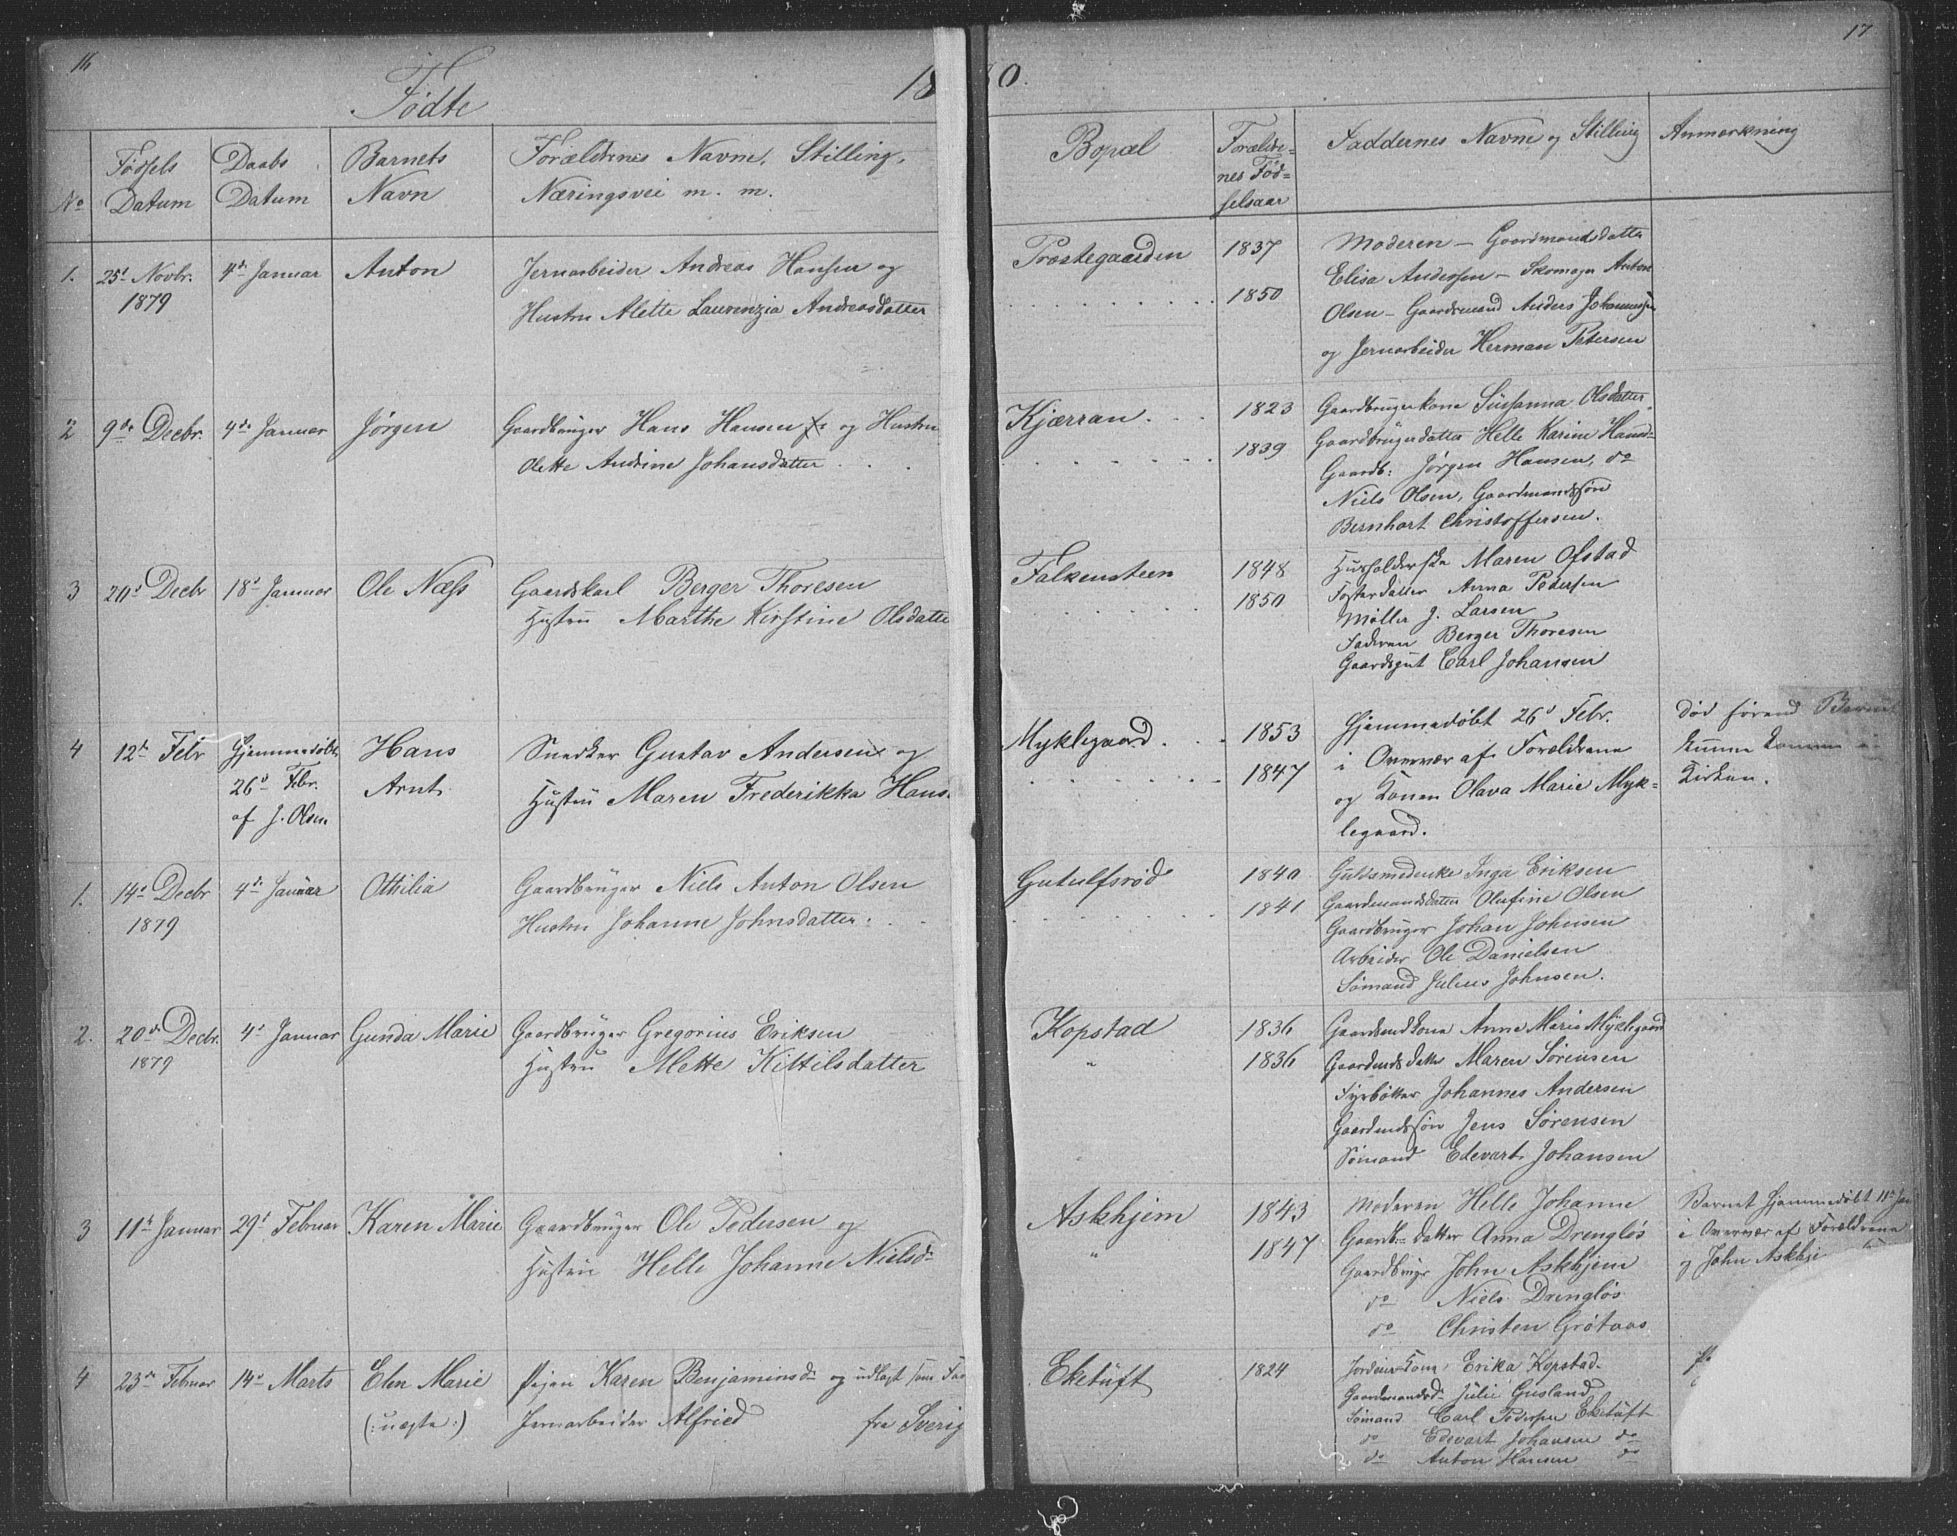 16
Fødte
1880.
17
No
Fødsels Datum
Daabs Datum
Barnets Navn
Forældrenes Navne, Stilling,
Næringsvei m. m.
Bopæl
Forældre-
nes Fød-
selsaar
Faddernes Navne og Stilling
Anmærkning
1. 25de Novbr. 1879
4de Januar
Anton
Jernarbeider Andreas Hansen og
Hustru Alette Laurenzia Andreasdatter
Præstegaarden
1837
1850
Moderen – Gaardmandsdatter
Elisa Andersen – Skomager Anton
Olsen – Gaardmand Anders Johannessen
og Jernarbeider Herman Petersen
2 9de Decbr.
4de Januar
Jørgen
Gaardbruger Hans Hansen og Hustru
Olette Andrine Johansdatter
Kjærran
1823
1839
Gaardbrugerkone Susanna Olsdatter
Gaardbrugerdatter Helle Karine Hansd:
Gaardb: Jørgen Hansen, do
Niels Olsen, Gaardmandssøn
Bernhart Christoffersen.
3 20d Decbr
18d Januar
Ole Næss
Gaardskarl Berger Thoresen
Hustru Marthe Kirstine Olsdatte
Falkensteen
1848
1850
Husholderske Maren Ofstad
Fosterdatter Anna Pedersen
Møller J. Larsen
Faderen Berger Thoresen
Gaardsgut Carl Johansen
4 12te Febr
Hjemmedøbt
26d Febr.
af J. Olsen
Hans
Arnt
Snedker Gustav Andersen og
Hustru Maren Frederikka Hans
Myklegaard
1853
1847
Hjemmedøbt 26d Febr.
i Overvær af Forældrene
og Konen Olava Marie Myk=
legaard.
Død førend Barnet
kunne komme i
Kirken.
1. 14d Decbr 1879
4de Januar
Othilia
Gaardbruger Niels Anton Olsen
Hustru Johanne Johnsdatter
Gutulfsrød
1840
1841
Guldsmedenke Inga Eriksen
Gaardmandsdatter Olufine Olsen
Gaardbruger Johan Johnsen
Arbeider Ole Danielsen
Sømand Julius Johnsen.
2. 20de Decbr. 1879
4d Januar
Gunda Marie
Gaardbruger Gregorius Eriksen
Hustru Mette Kittilsdatter
Kopstad
"
1836
1836
Gaardmdkone Anne Marie Myklegaard
Gaardmdsdatter Maren Sørensen
Fyrbøtter Johannes Andersen
Gaardmdssøn Jens Sørensen
Sømand Edevart Johansen
3 11te Januar
29d Februar
Karen Marie
Gaardbruger Ole Pedersen og
Hustru Helle Johanne Nielsd:
Askhjem
"
1843
1847
Moderen Helle Johanne
Gaardbr datter Anna Drengløs
Gaardbruger John Askhjem
do Niels Drengløs
do Christen Grøtaas
Barnet hjemmedøbt 11te Jan
i Overvær af Forældrene
og John Askhje
4 23de Februar
14d Marts
Elen Marie
(: uægte :)
Pigen Karen Benjaminsd: og udlagt som Fad
Jernarbeider Alfried fra Sverig
Eketuft
1824
Erika Kopstad
Gaardmandsd: Julie Gusland
Sømand Carl Pedersen Eketuft
do Edevart Johansen do
do Anton Hansen do